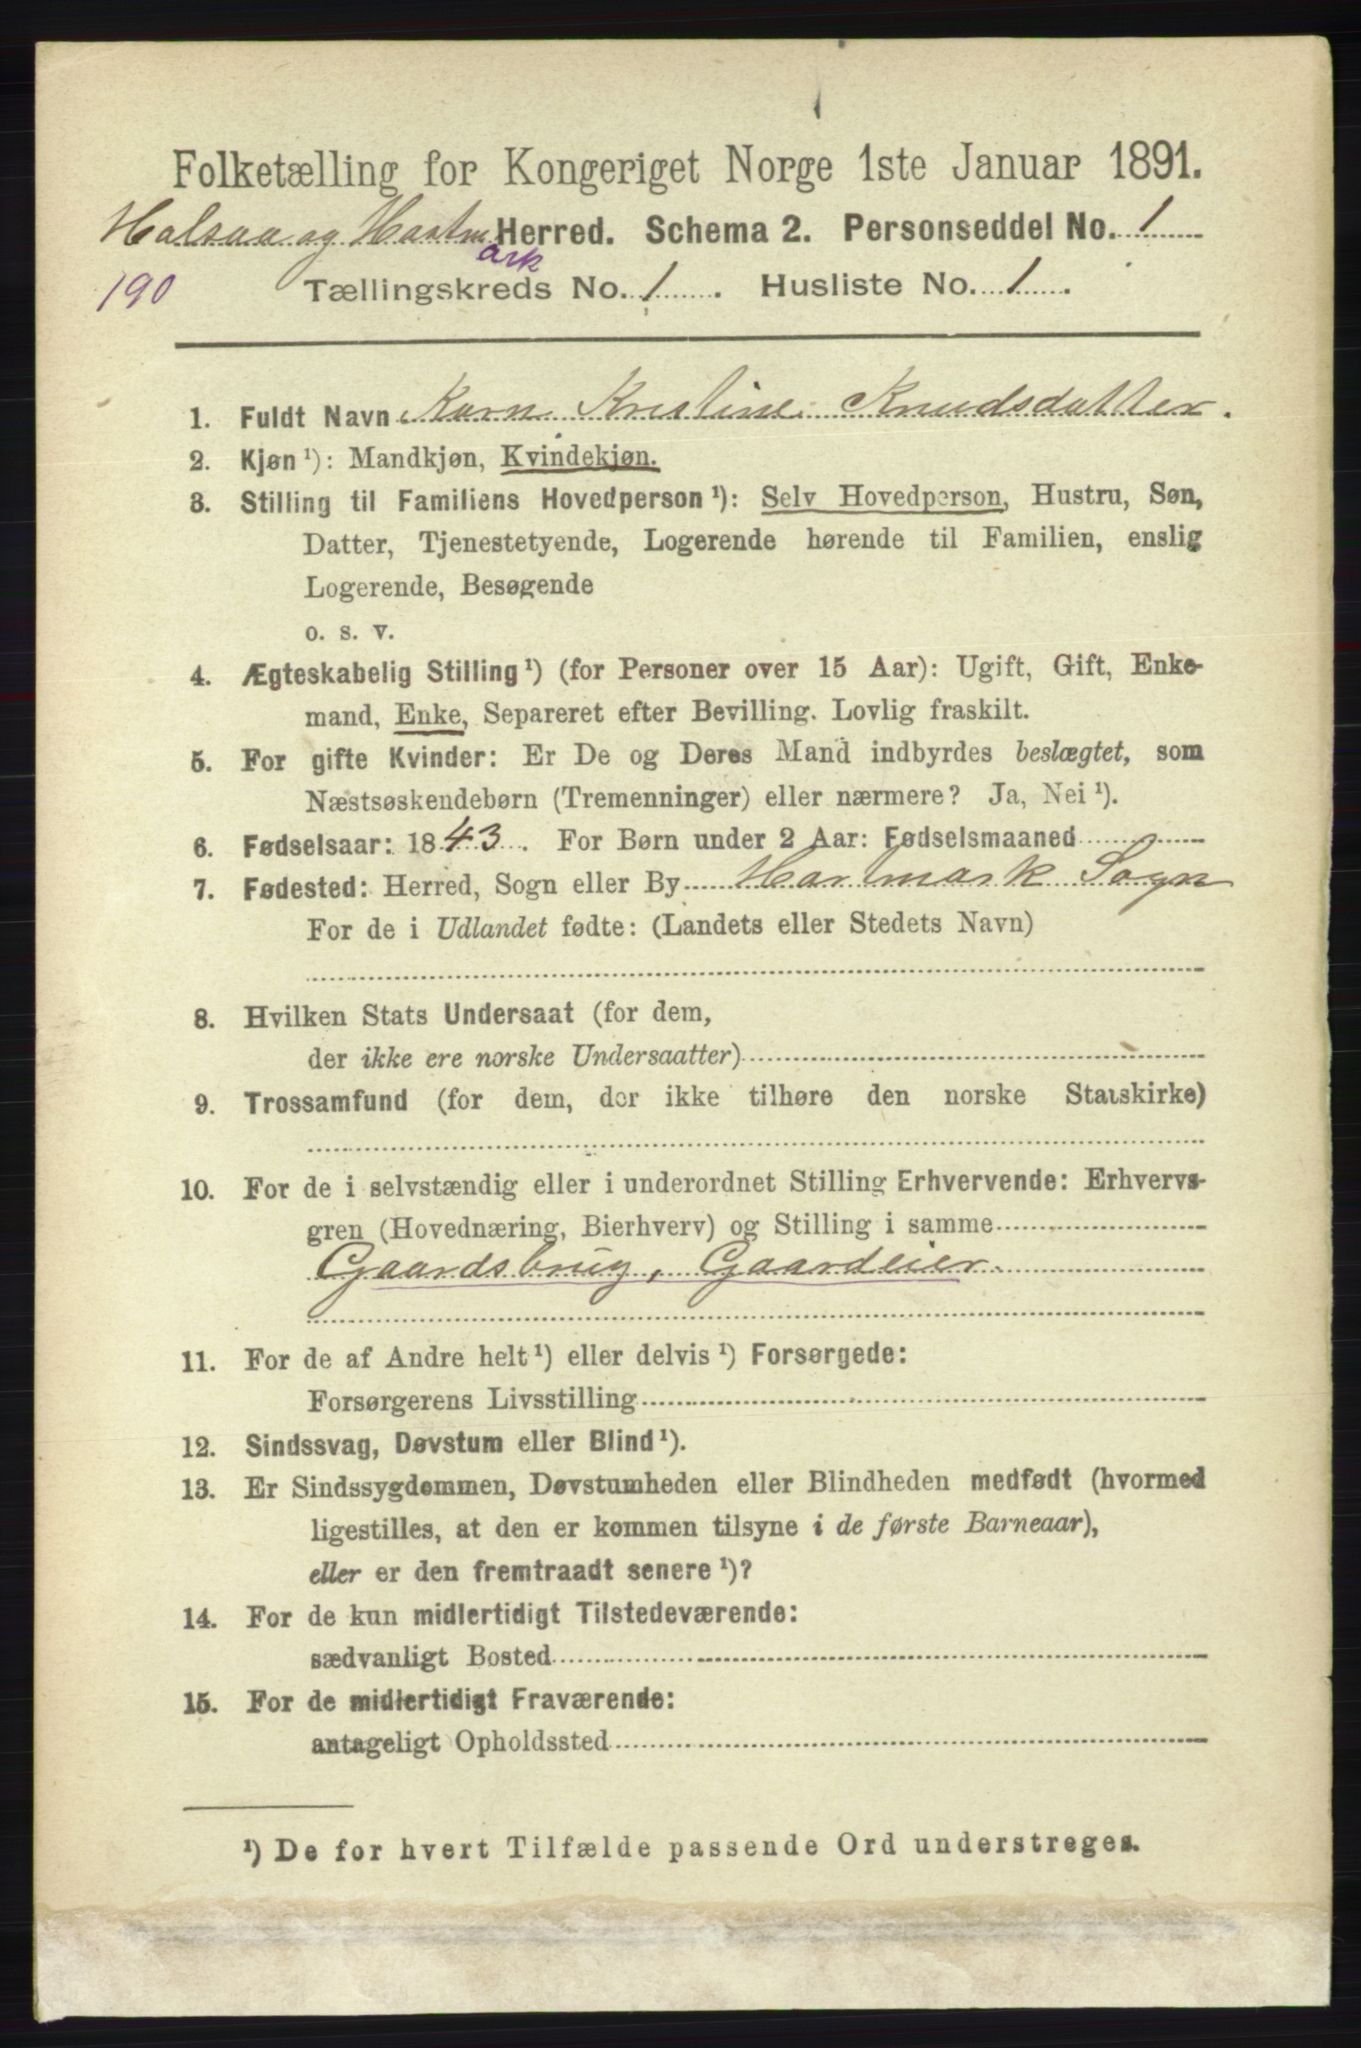 Folketælling for Kongeriget Norge 1ste Januar 1891.
Halsaa og Hartmark Herred. Schema 2. Personseddel No. 1
190 Tællingskreds No. 1. Husliste No. 1.
1. Fuldt Navn Karn Kristine Knudsdatter.
2. Kjøn ¹): Mandkjøn, Kvindekjøn.
3. Stilling til Familiens Hovedperson ¹): Selv Hovedperson, Hustru, Søn,
Datter, Tjenestetyende, Logerende hørende til Familien, enslig
Logerende, Besøgende
o. s. v.
4. Ægteskabelig Stilling ¹) (for Personer over 15 Aar): Ugift, Gift, Enke-
mand, Enke, Separeret efter Bevilling. Lovlig fraskilt.
5. For gifte Kvinder: Er De og Deres Mand indbyrdes beslægtet, som
Næstsøskendebørn (Tremenninger) eller nærmere? Ja, Nei ¹).
6. Fødselsaar: 1843. For Børn under 2 Aar: Fødselsmaaned
7. Fødested: Herred, Sogn eller By Hartmark Sogn
For de i Udlandet fødte: (Landets eller Stedets Navn)
8. Hvilken Stats Undersaat (for dem,
der ikke ere norske Undersaatter)
9. Trossamfund (for dem, der ikke tilhøre den norske Statskirke)
10. For de i selvstændig eller i underordnet Stilling Erhvervende: Erhvervs-
gren (Hovednæring, Bierhverv) og Stilling i samme
Gaardsbrug, Gaardeier.
11. For de af Andre helt ¹) eller delvis ¹) Forsørgede:
Forsørgerens Livsstilling
12. Sindssvag, Døvstum eller Blind ¹).
13. Er Sindssygdommen, Døvstumheden eller Blindheden medfødt (hvormed
ligestilles, at den er kommen tilsyne i de første Barneaar),
eller er den fremtraadt senere ¹)?
14. For de kun midlertidigt Tilstedeværende:
sædvanligt Bosted
15. For de midlertidigt Fraværende:
antageligt Opholdssted
¹) De for hvert Tilfælde passende Ord understreges.